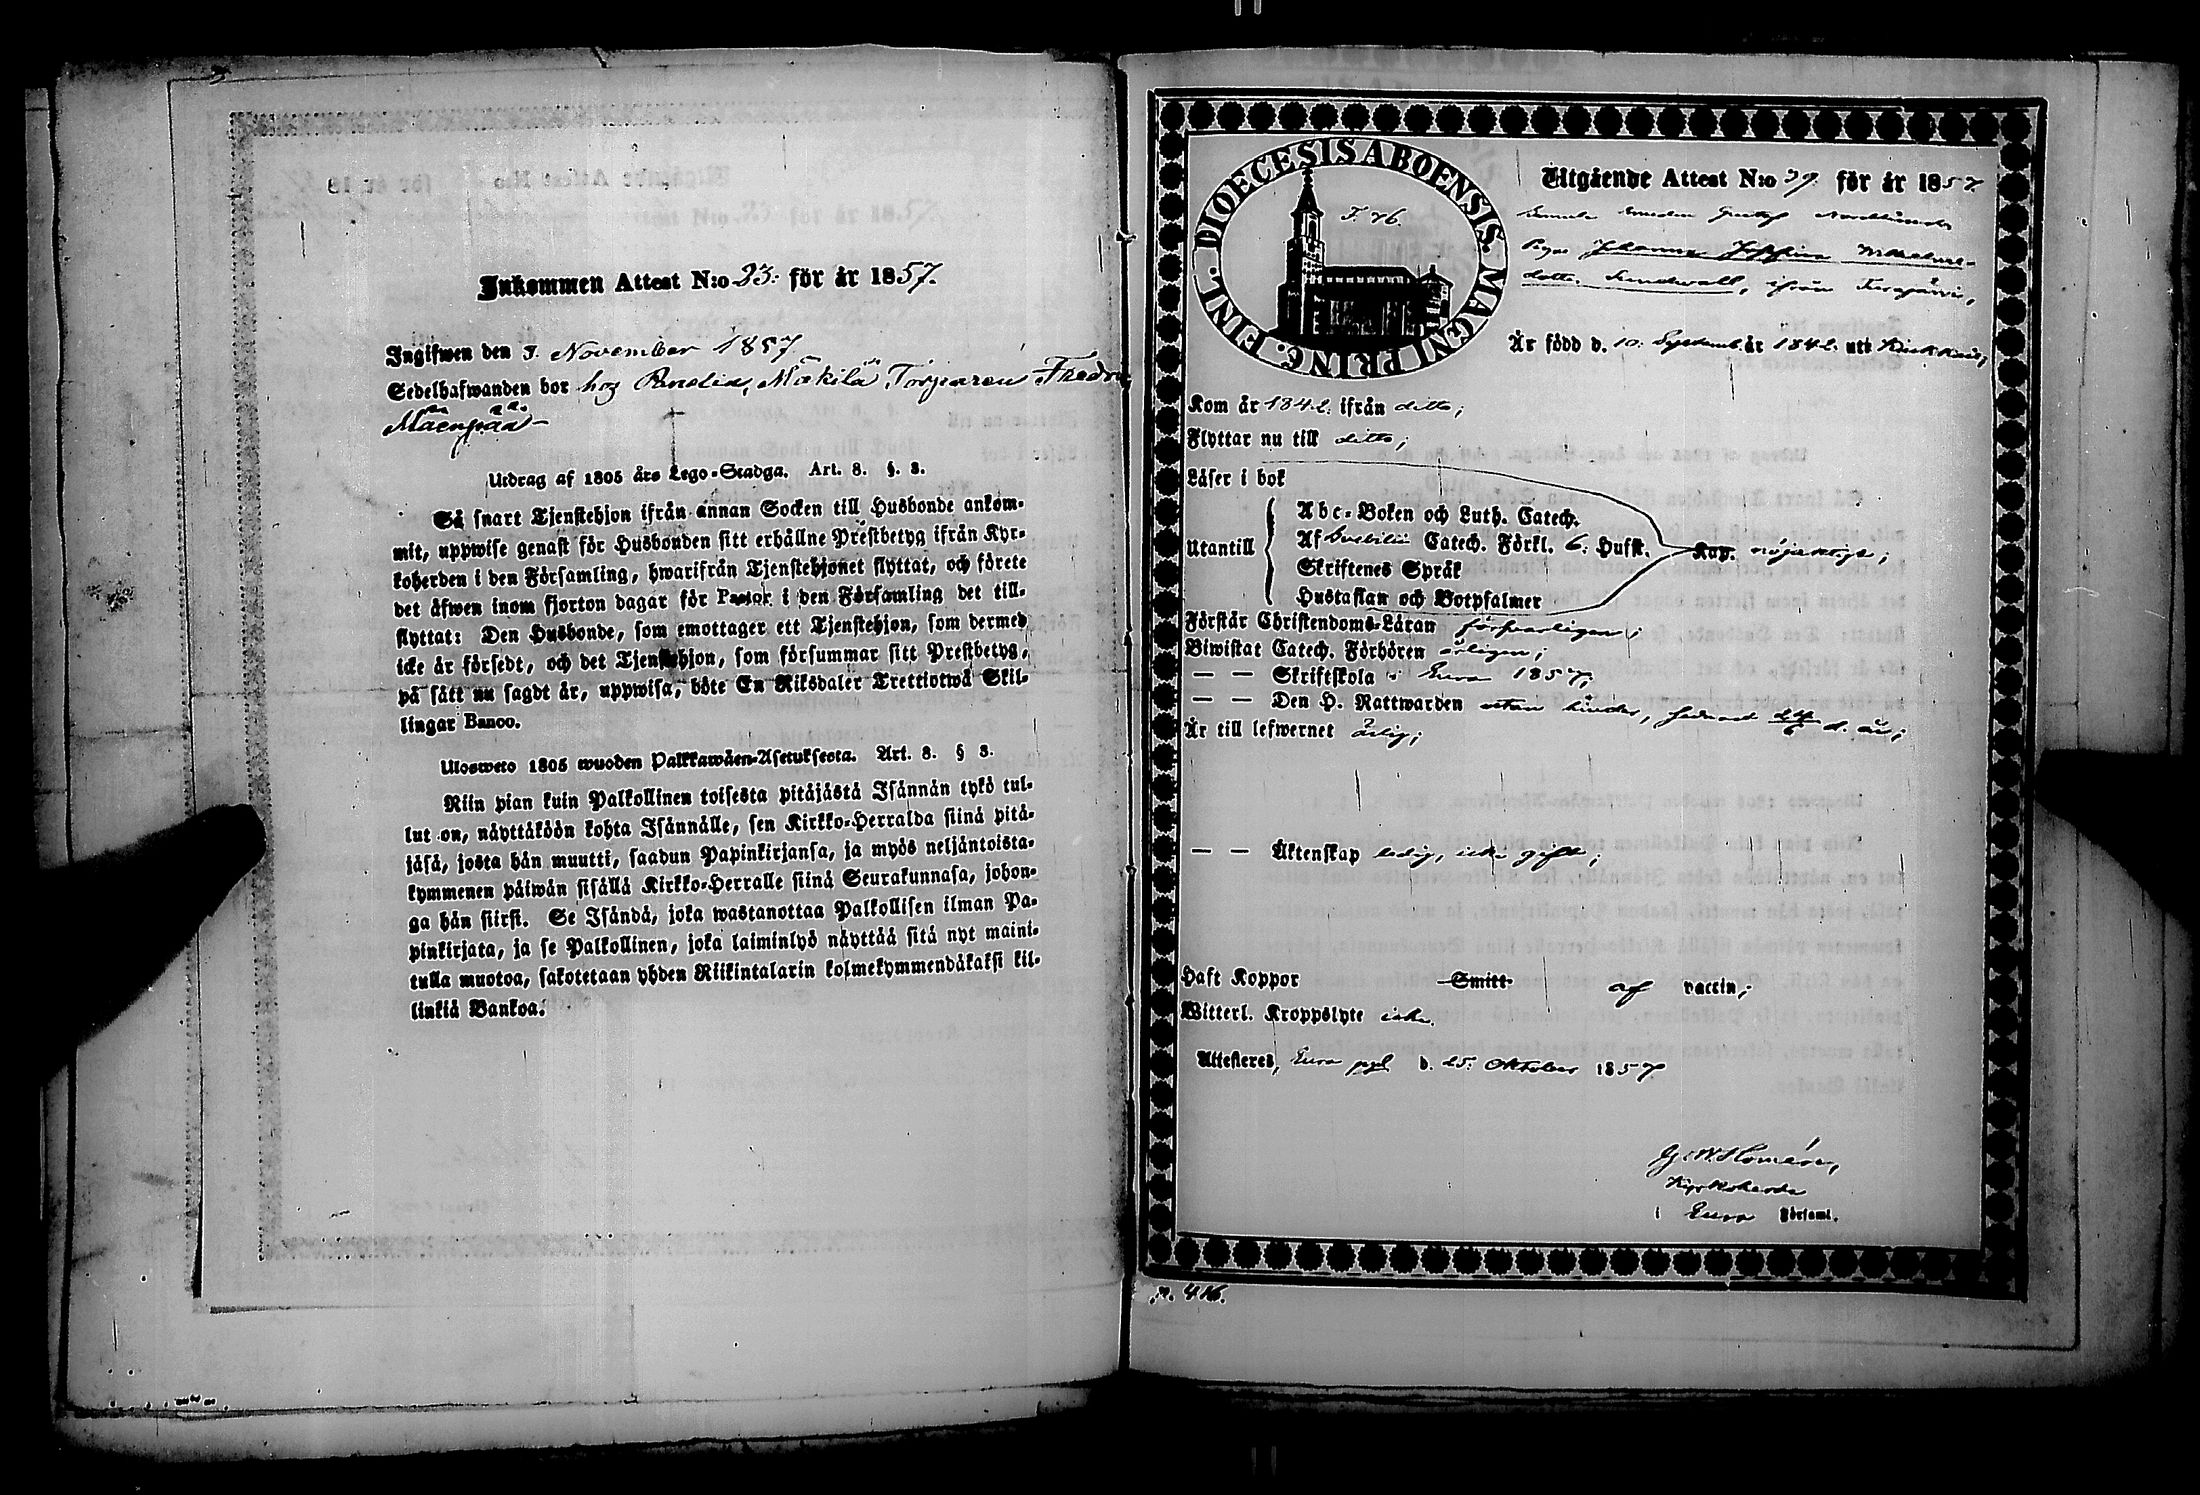 Inkommen Attest N:o 23. för år 1857.
Ingifwen den 1. November 1857
Sedelhafwanden bor hos Panelia, Mäkilä, Torparen Fredr
Mäenpää
Utdrag af 1805 års Lego-Stadga. Art. 8. §. 3.
Så snart Tjenstehjon ifrån annan Socken till Husbonde ankom-
mit, uppwise genast för Husbonden sitt erhållne Prestbetyg ifrån Kyr-
koherden i den Församling, hwarifrån Tjenstehjonet flyttat, och förete
det äfwen inom fjorton dagar för Pastor i den Församling det till-
flyttat: Den Husbonde, som emottager ett Tjenstehjon, som dermed
icke är försedt, och det Tjenstehjon, som försummar sitt Prestbetyg,
på sätt nu sagdt är, uppwisa, böte En Riksdaler Trettiotwå Skil-
lingar Banco.
Ulosweto 1805 wuoden Palkkawäen-Asetuksesta. Art. 8. § 3.
Niin pian kuin Palkollinen toisesta pitäjästä Isännän tykö tul-
lut on, näyttäköön kohta Isännälle, sen Kirkko-Herralda siinä pitä-
jäsä, josta hän muutti, saadun Papinkirjansa, ja myös neljäntoista-
kymmenen päiwän sisällä Kirkko-Herralle siinä Seurakunnasa, johon-
ga hän siirsi. Se Isändä, joka wastanottaa Palkollisen ilman Pa-
pinkirjata, ja se Palkollinen, joka laiminlyö näyttää sitä nyt maini-
tulla muotoa, sakotetaan yhden Riikintalarin kolmekymmendäkaksi kil-
linkiä Bankoa.
DIOECESIS ABOENSIS. MAGNI PRINC. FINL.
F. 76.
Utgående Attest N:o 39. för år 1857
Gustaf
Piga Johanna Wilhelms-
dotter ifrån
Är född d. 10. Septemb. år 1842. uti
Kom år 1842. ifrån ditto;
Flyttar nu till ditto;
Läser i bok
Utantill
Abc-Boken och Luth. Catech.
Af Svebilii Catech. Förkl. 6. Hufst.
Skriftenes Språk
Hustaflan och Botpsalmer
Kap. nöjaktigt;
Förstår Christendoms-Läran försvarligen;
Biwistat Catech. Förhören årligen;
— — Skriftskola i Eura 1857;
— — Den H. Nattwarden utan hinder, 24/6 d. år;
Är till lefwernet ärlig;
— — Äktenskap ledig, icke gift;
Haft Koppor Smitt af vaccin;
Witterl. Kroppslyte icke.
Attesteres, Eura pgd d. 25. Oktober 1857
G. W. Homén,
Kyrkoherde
i Eura Församl.
p. 416.